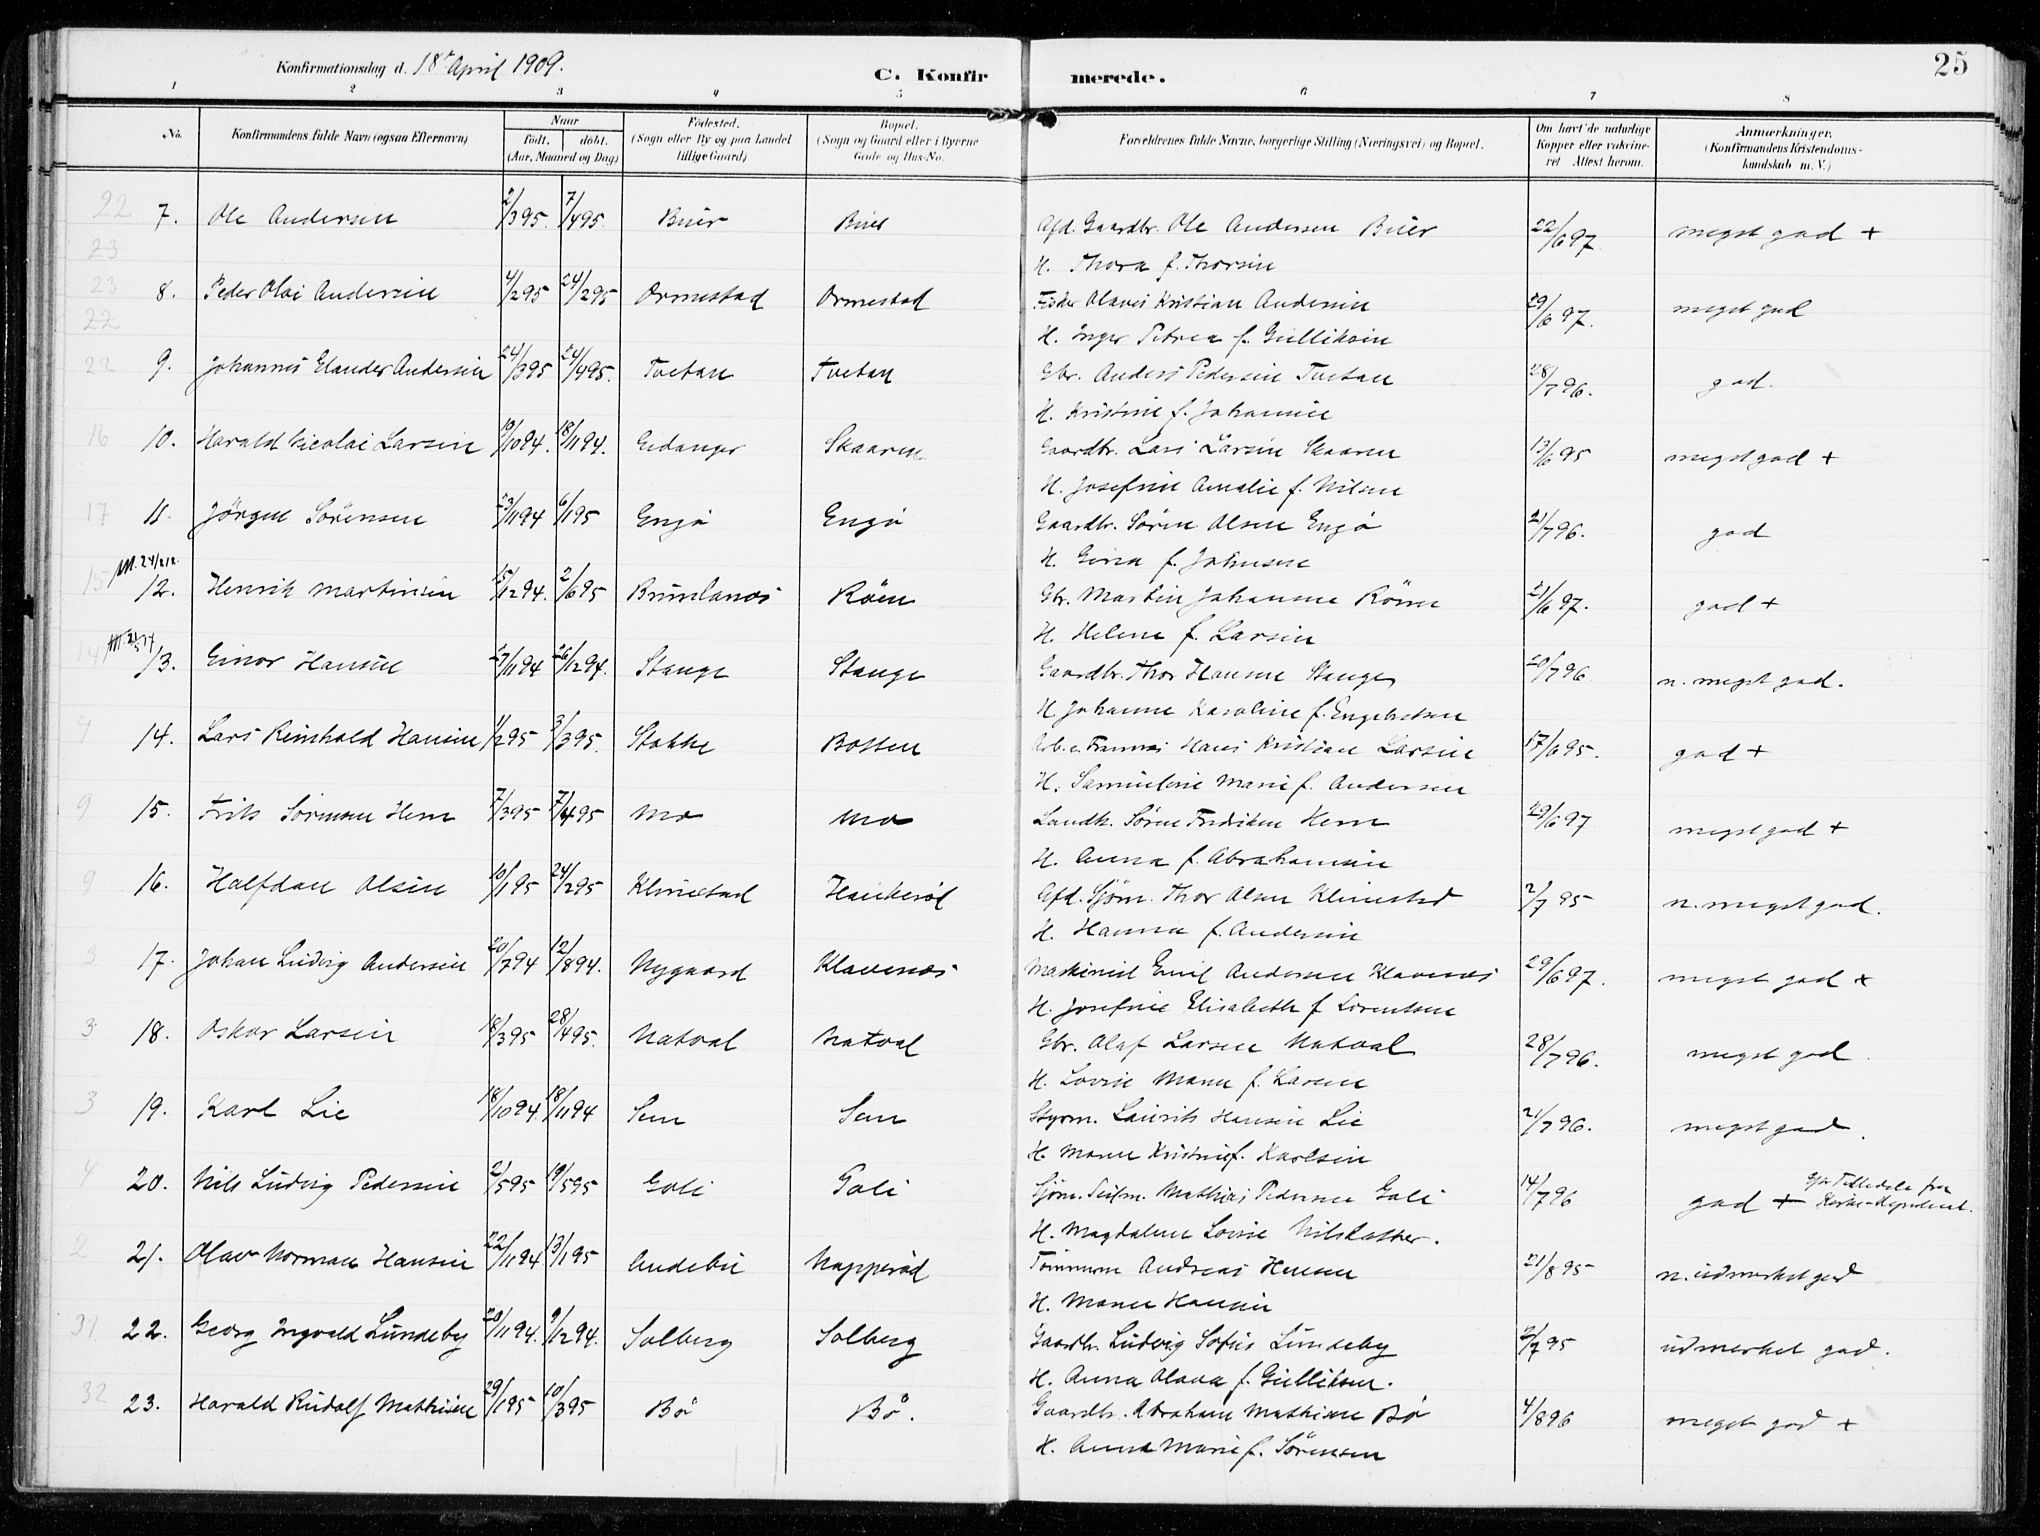 Konfirmationsdag d. 18de April 1909. C. Konfirmerede. 25
1 2 3 4 5 6 7 8
No. Konfirmandens fulde Navn (ogsaa Efternavn) Naar født. døbt. (Aar, Maaned og Dag) Fødested. (Sogn eller By og paa Landet tillige Gaard) Bopæl. (Sogn og Gaard eller i Byerne Gade og Hus-No. Forældrenes fulde Navne, borgerlige Stilling (Næringsvei) og Bopæl. Om havt de naturlige Kopper eller vakcineret Attest herom. Anmærkninger. (Konfirmandens Kristendomskundskab m. V.)
22 7. Ole Andersen 2/3 95. 7/4 95. Buer Buer Afd. Gaardbr. Ole Andersen Buer 22/6 97 meget god +
23 H. Thora f. Thorsen
23 8. Peder Olai Andersen 4/2 95 24/2 95 Ormestad Ormestad Fisker Olaves Kristian Andersen 29/6 97. meget god
22 H. Inger Petrea f. Gulliksen
22 9. Johannes Elander Andersen 24/3 95 24/4 95. Tvetan Tvetan Gbr. Anders Pedersen Tvetan 28/7 96. god.
H. Kristine f. Johannsen
16 10. Harald Nicolai Larsen 19/10 94. 18/11 94. Eidanger Skaaren Gaardbr. Lars Larsen Skaaren 13/6 95 meget god +
H. Josefine Amalie f. Nilsen
17 11. Jörgen Sörensen 23/11 94 6/1 95 Engø Engø Gaardbr. Søren Olsen Engø 21/7 96. god
H. Gina f. Johnsen
15 12. Henrik Martinsen 15/12 94. 2/6 95 Brunlanes Røen Gbr. Martin Johansen Röen 21/6 97. god +
H. Helene f. Larsen
14 13. Einar Hansen 27/11 94 26/12 94. Stange Stange Gaardbr. Thor Hansen Stange 20/7 96 n. meget god.
H. Johanne Karoline f. Engebretsen
4 14. Lars Reinhold Hansen 1/2 95 3/3 95. Stokke Botten Arb. Hans Kristian Larsen 17/6 95. god +
H. Marie f. Andersen
9 15. Frits Sörensen Hem 7/3 95 7/4 95 Mo Mo Landh. Søren Fredriksen Hem 29/6 97 meget god +
H. Anna f. Abrahamsen
9 16. Halfdan Olsen 10/1 95 24/2 95 Klinestad Haukerød Afd. Sjöm. Thor Olsen Klinestad 2/7 95 n. meget god.
H. Hanna f. Andersen
3 17. Johan Ludvig Andersen 20/7 94 12/8 94. Nygaard Klavenes Maskinist Emil Andersen Klavenes 29/6 97. meget god +
H. Josefine Elisabeth f Lorentsen
3 18. Oskar Larsen 18/3 95 28/4 95. Natval Natval Gbr. Olaf Larsen Natval 28/7 96. meget god.
H. Lovise Maren f. Larsen
3 19. Karl Lie 18/10 94 18/11 94 Sem Sem Styrm. Laurits Hansen Lie 21/7 96. meget god.
H. Maren Kristine f. Karlsen
4 20. Nils Ludvig Pedersen 2/5 95 19/5 95 Goli Goli Sjöm. Mathias Pedersen Goli 14/7 96 god + Tilladelse fra Kirke-
H. Magdalene Lovise Nilsdatter.
2 21. Olav Norman Hansen 22/11 94 13/1 95 Andebu Napperød Tömmerm Andreas Hansen 21/8 95 n. udmerket god
H. Maren Hansen
31 22. Georg Ingvald Lundeby 20/11 94. 9/12 94. Solberg Solberg Gaardbr. Ludvig Sofus Lundeby 2/7 95 udmerket god.
H. Anna Olava f. Gulliksen.
32 23. Harald Rudolf Mathisen 29/1 95 10/3 95 Bø Bø. Gaardbr. Abraham Mathisen Bø 4/8 96 meget god +
H. Anna Marie f. Sörensen